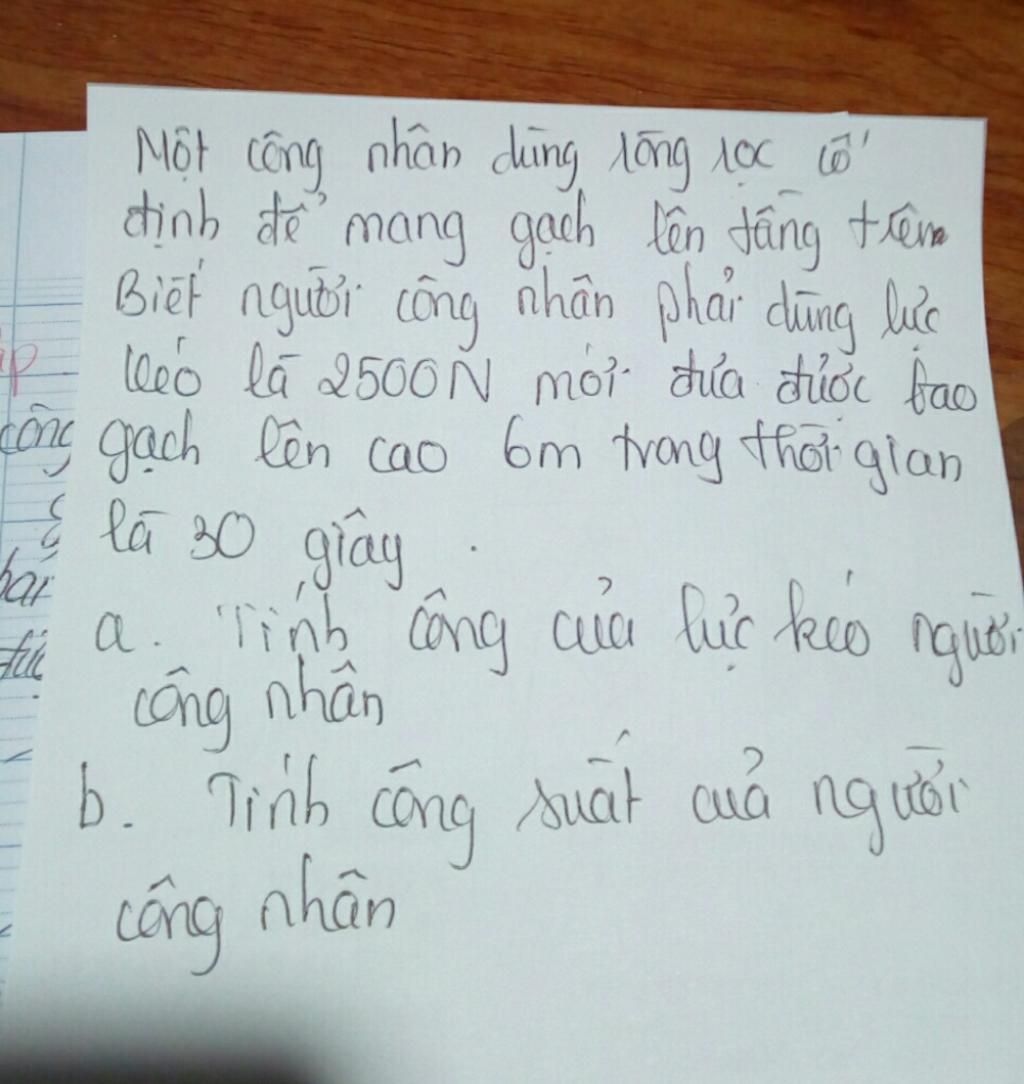 Một công nhân dùng ròng rọc cố
định để mang gạch lên tầng trên
Biết người công nhân phải dùng lực
kéo là 2500N mới đưa được bao
gạch lên cao 6m trong thời gian
là 30 giây.
a. Tính công của lực kéo người
công nhân
b. Tính công suất của người
công nhân
công